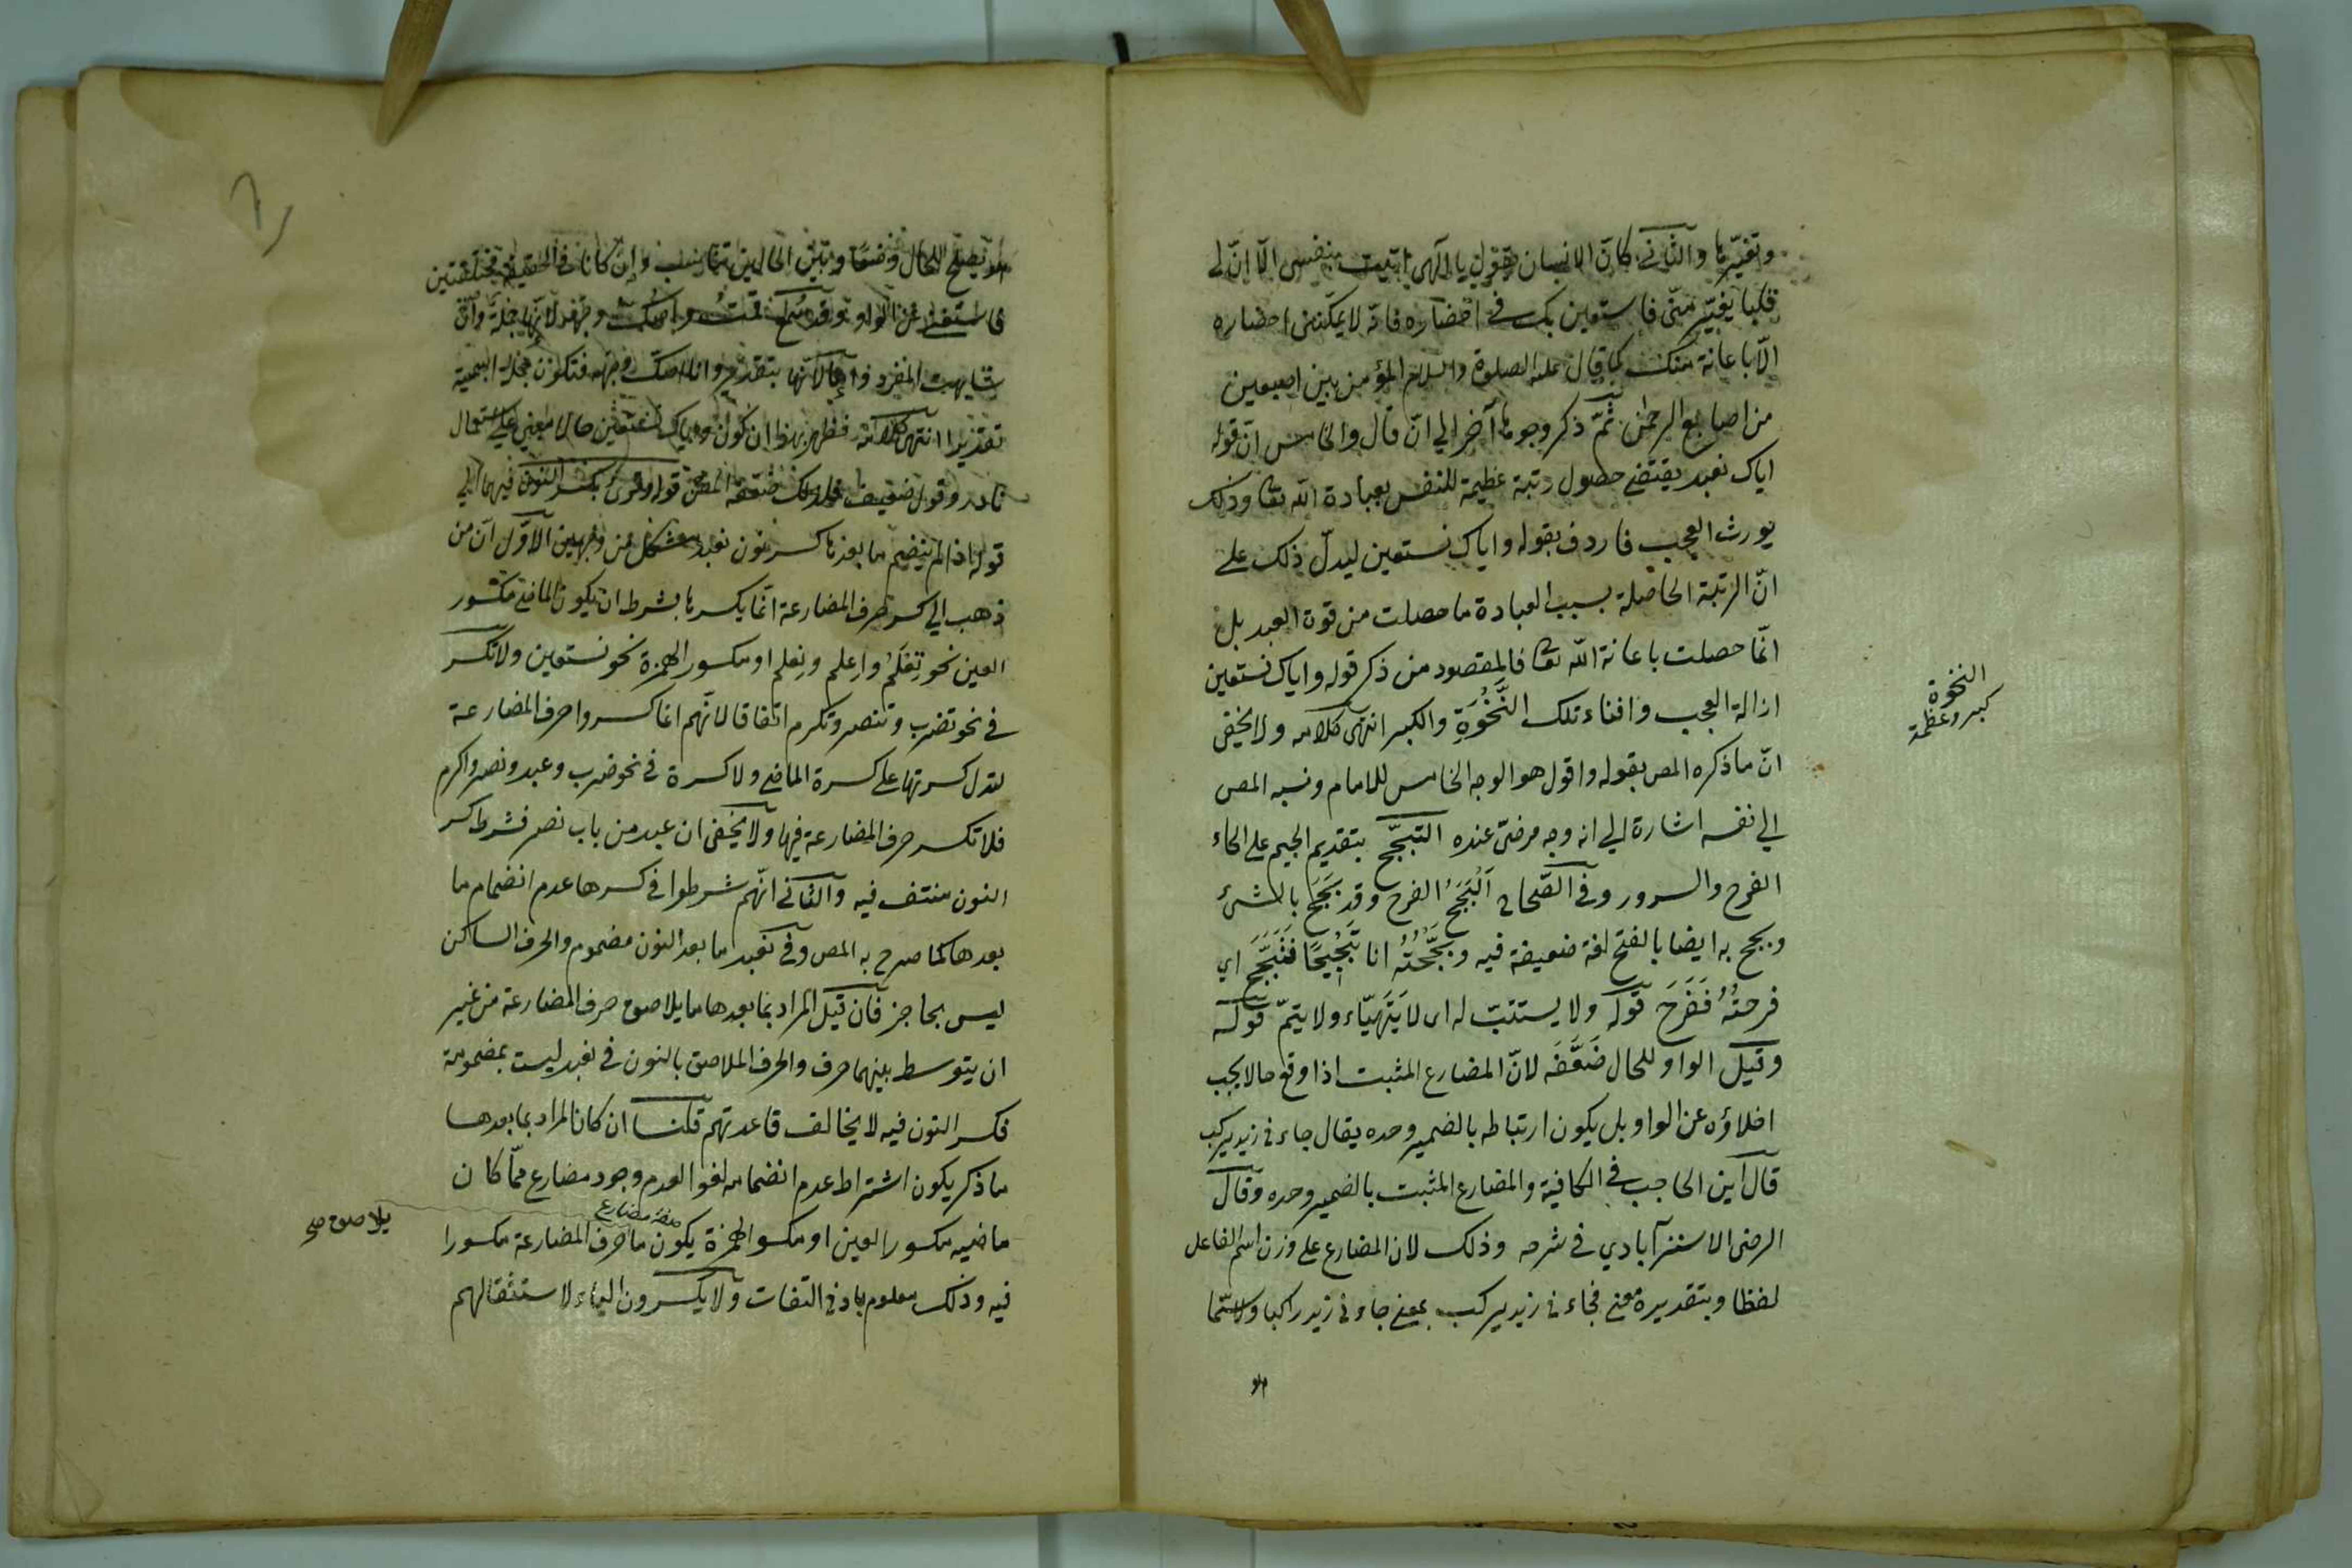 وتغيّرها والثانى كانّ الانسان يقول يا الهى اتيت بنفسى الّا انّ لى
قلبا يفرّ منّى فاستعين بك فى احضاره فانّه لا يمكننى احضاره
الّا باعانة منك كما قال عليه الصلوة والسلام المؤمن بين اصبعين
من اصابع الرحمٰن ثمّ ذكر وجوها آخر الى ان قال والخامس انّ قوله
اياك نعبد يقتضى حصول رتبة عظيمة للنفس بعبادة الله تعا وذلك
يورث العجب فاردف بقوله واياك نستعين ليدلّ ذلك على
انّ الرتبة الحاصلة بسبب العبادة ما حصلت من قوة العبد بل
انّما حصلت باعانة الله تعا فالمقصود من ذكر قوله واياك نستعين
ازالة العجب وافناء تلك النَّخْوَةِ والكبر انتهى كلامه ولا يخفى
انّ ما ذكره المص بقوله واقول هو الوجه الخامس للامام ونسبه المص
الى نفسه اشارة الى انه وجه مرضىّ عنده التبجّح بتقديم الجيم على الحاء
الفرح والسرور وفى الصّحاح اَلْبَجَحُ الفرح وقد بَجِحَ بالشئ
وبجح به ايضا بالفتح لغة ضعيفة فيه وبَجَّحْتُهُ انا تَبْجِيْحًا فَتَبَجَّحَ اي
فرحتُهُ فَفَرِحَ قوله ولا يستتبّ له اى لا يَتَهَيّاء ولا يتمّ قوله
وقيل الواو للحال ضَعَّفَه لانّ المضارع المثبت اذا وقع حالا يجب
اخلاؤه عن الواو بل يكون ارتباطه بالضمير وحده يقال جاءنى زيد يركب
قال ابن الحاجب فى الكافية والمضارع المثبت بالضمير وحده وقال
الرضى الاسترآبادي فى شرحه وذلك لان المضارع على وزن اسم الفاعل
لفظا وبتقديره معنى فجاءنى زيد يركب بمعنى جاءنى زيد راكبا ولا سيّما
النخوة
كبر وعظمة
وهو
وهو يصلح للحال وضعا وبين الحالين تناسب وان كانا فى الحقيقة مختلفتين
فاستغنى عن الواو وقد سمع قمتُ واصكّ وجهه لانها جملة وان
شابهت المفرد واما لانها بتقدير وانا اصكّ وجهه فتكون جملة اسمية
تقديرا انتهى كلامه فظهر بهذا ان كون واياك نستعين حالا مبنى على استعمال
نادر وقول ضعيف فلذلك ضعّفه المص قوله وقرئ بكسر النون فيهما الى
قوله اذا لم ينضم ما بعدها كسر نون نعبد مشكل من وجهين الاوّل ان من
ذهب الى كسر حرف المضارعة انّما يكسرها بشرط ان يكون الماضى مكسور
العين نحو تِعْلَمُ واِعلم ونِعلم او مكسور الهمزة نحو نستعين ولا تكسر
فى نحو تضرب وتنصر وتكرم اتفاقا لانّهم انما كسروا حرف المضارعة
لتدل كسرتها على كسرة الماضى ولا كسرة فى نحو ضرب وعبد ونصر واكرم
فلا تكسر حرف المضارعة فيها ولا يخفى ان عبد من باب نصر فشرط كسر
النون منتف فيه والثانى انّهم شرطوا فى كسرها عدم انضمام ما
بعدها كما صرح به المص وفى نعبد ما بعد النون مضموم والحرف الساكن
ليس بحاجز فان قيل المراد بما بعدها ما يلاصق حرف المضارعة من غير
ان يتوسط بينهما حرف والحرف الملاصق بالنون فى نعبد ليست بمضمومة
فكسر النون فيه لا يخالف قاعدتهم قلنا ان كان المراد بما بعدها
ما ذكر يكون اشتراط عدم انضمامه لغوا لعدم وجود مضارع ممّا كان
ماضيه مكسور العين او مكسور الهمزة يكون ما حرف المضارعة مكسورا
فيه وذلك معلوم بادنى التفات ولا يكسرون الياء لاستثقالهم
يلاصق صح